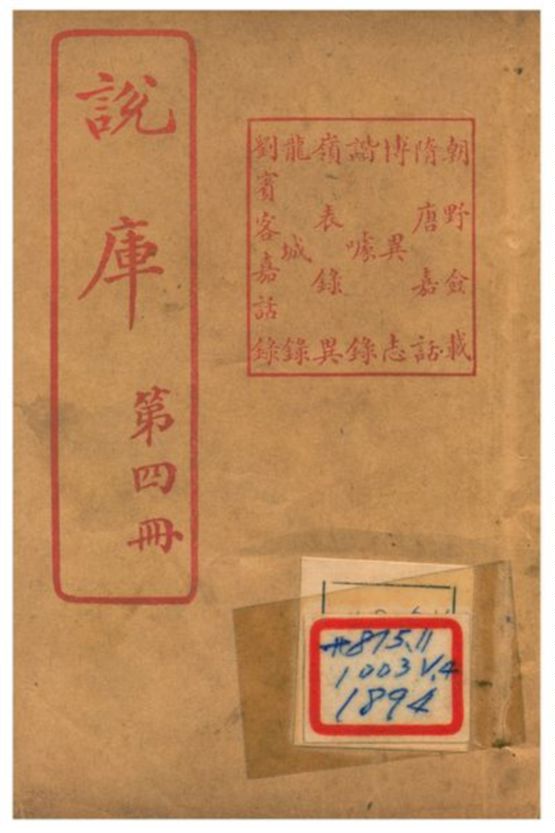 說庫 第四冊
朝野僉載
隋唐嘉話
博異志
諧噱錄
嶺表錄異
龍城錄
劉賓客嘉話錄
#875.11
1003 V.4
1894